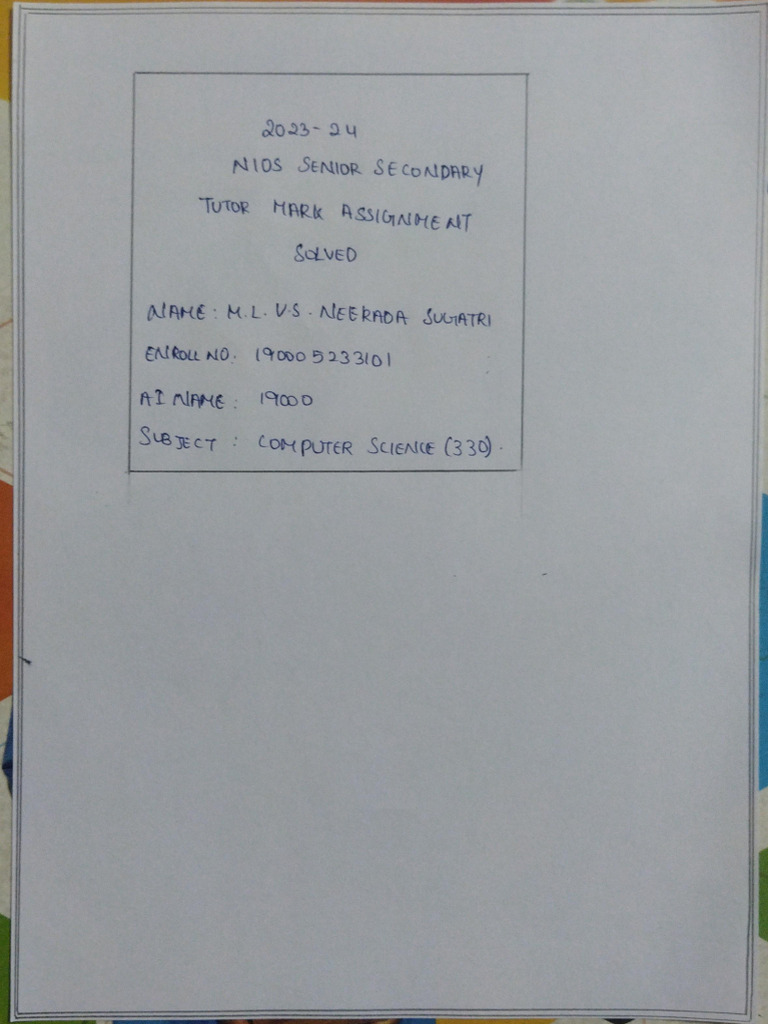 2023-24
NIOS SENIOR SECONDARY
TUTOR MARK ASSIGNMENT
SOLVED
NAME: M.L.V.S. NEERADA SUGATRI
ENROLL NO: 190005233101
AI NAME: 19000
SUBJECT : COMPUTER SCIENCE (330).